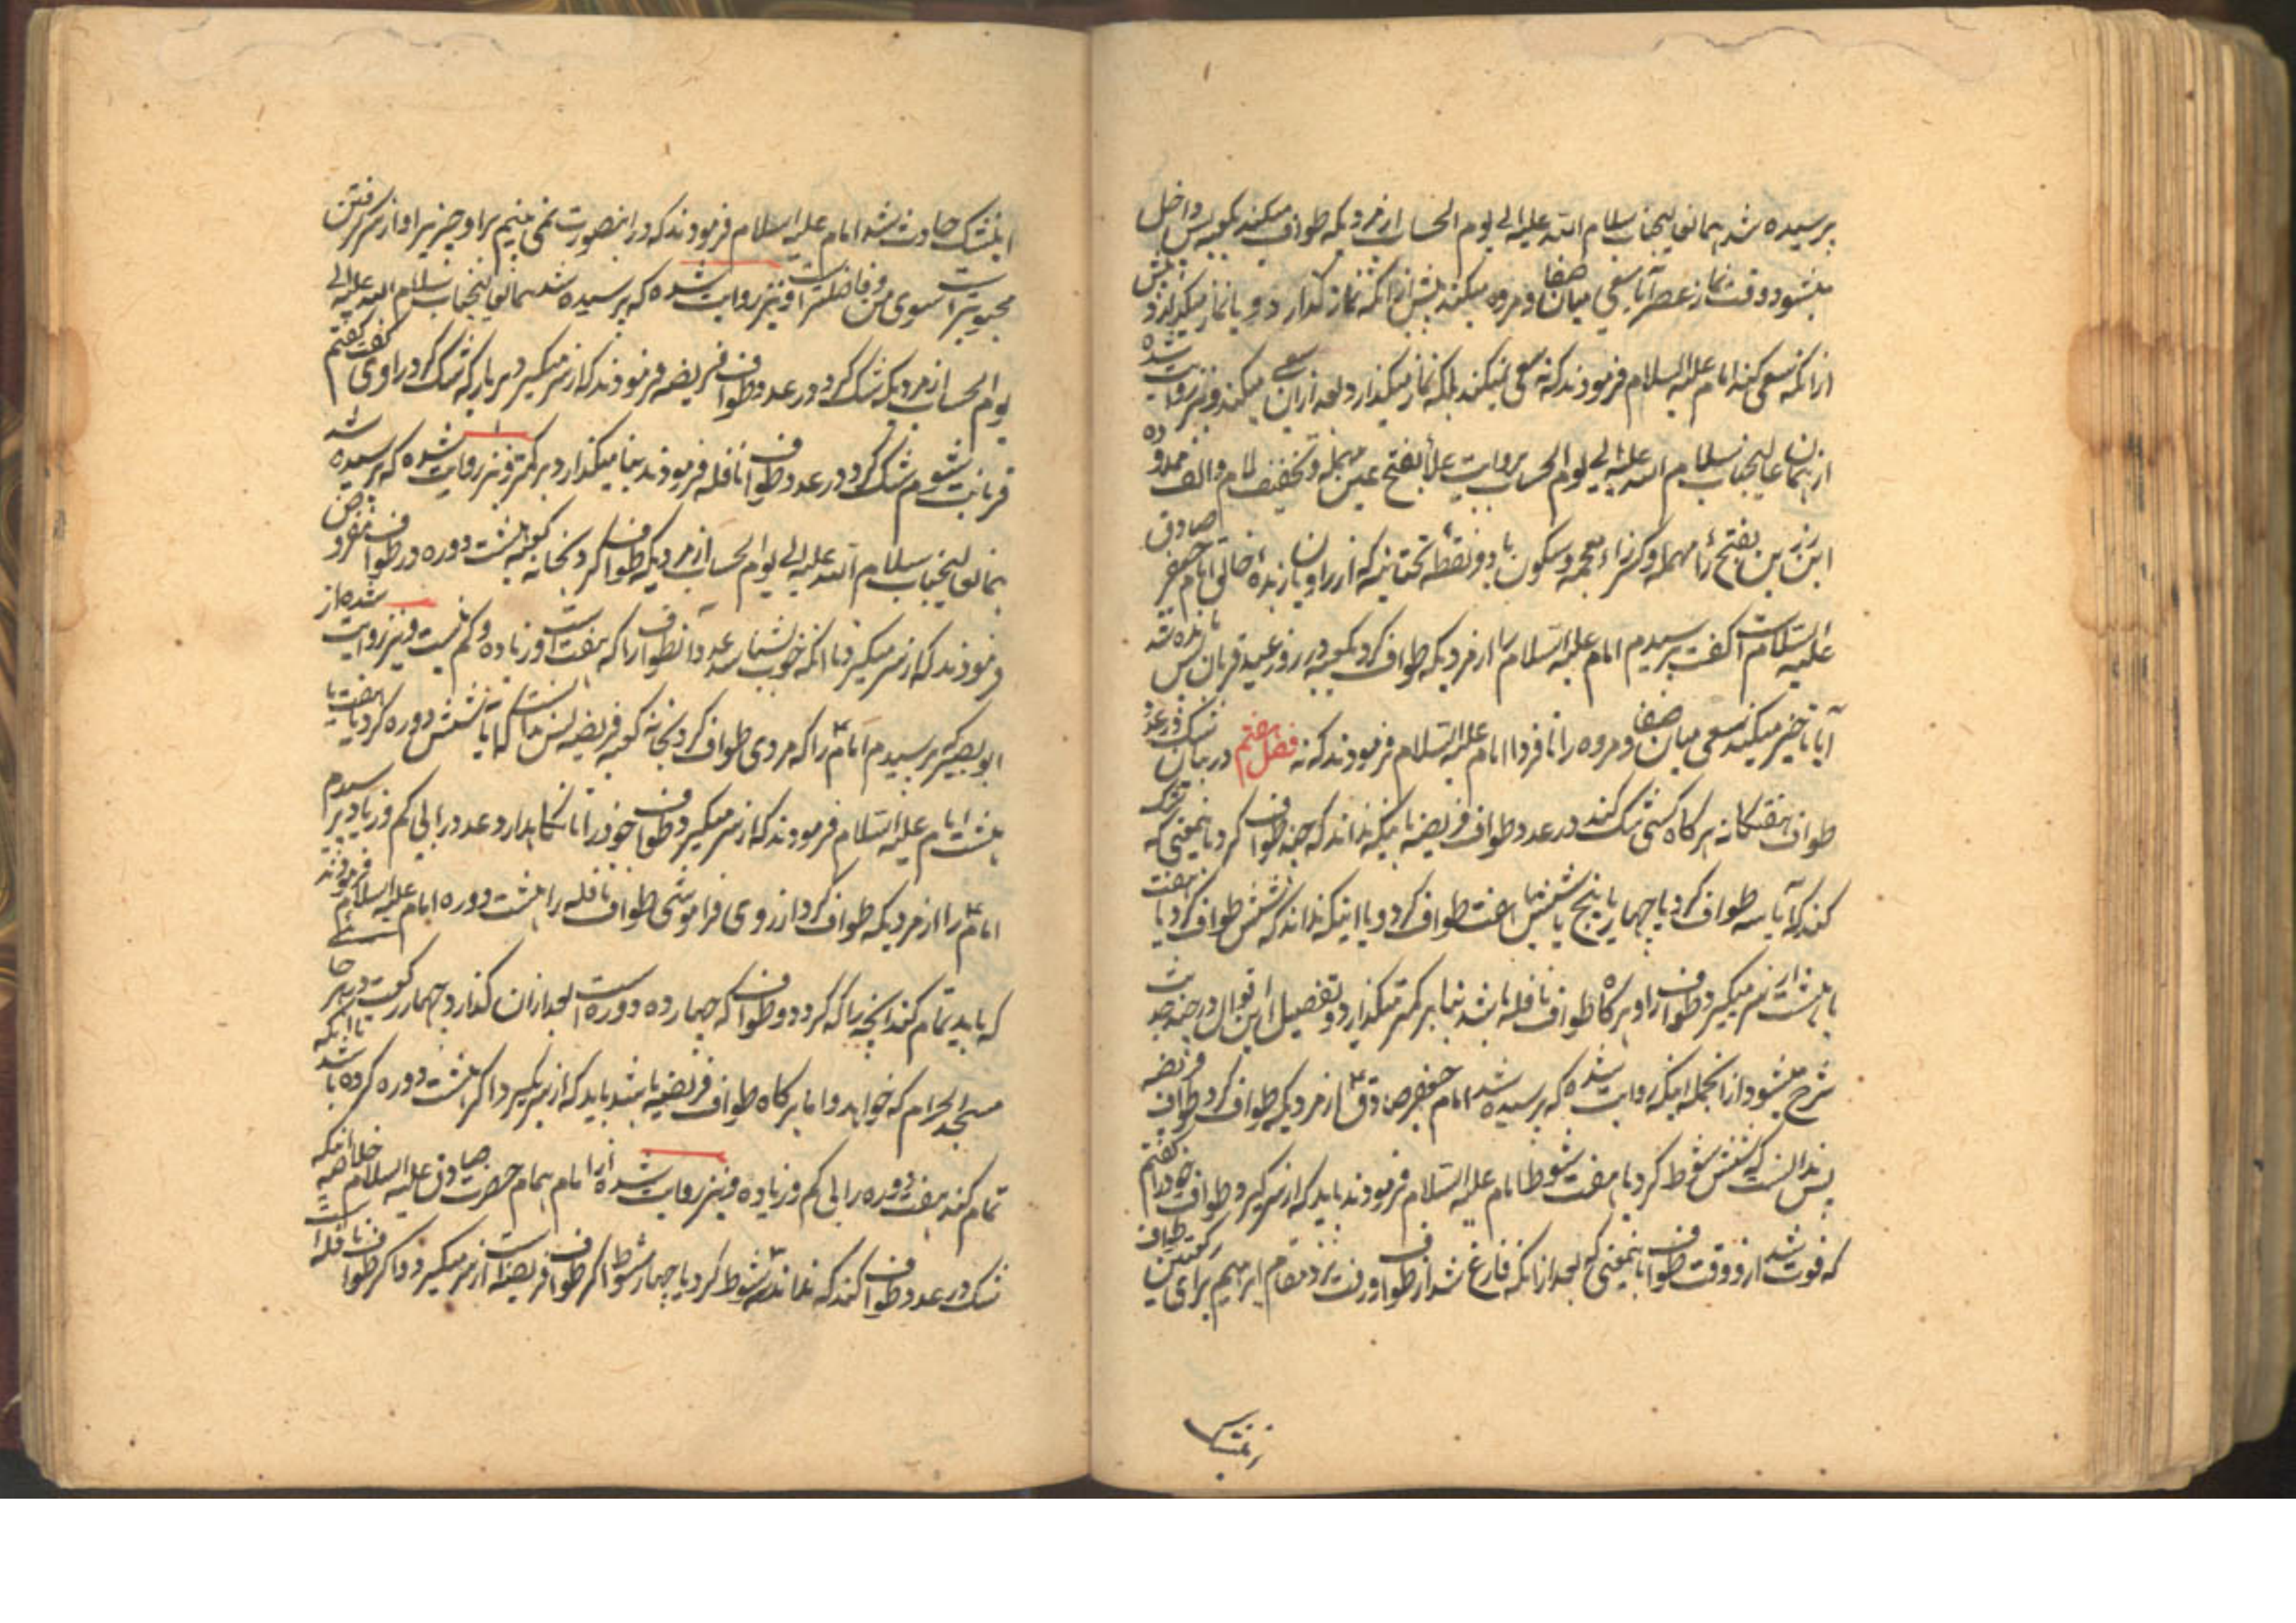 پرسیده شد همان عالیجناب سلام الله علیه الی یوم الحساب از مردیکه طواف میکند بکعبه پس داخل
میشود وقت نماز عصر آیا سعی میان صفا و مروه میکند پیش از آنکه نماز گذارد و یا نماز میگذارد پیش
از آنکه سعی کند امام علیه السلام فرمودند که نه سعی نمیکند بلکه نماز میگذارد و بعد از آن سعی میکند و نیز روایت شده
از همان عالیجناب سلام الله علیه الی یوم الحساب بروایت علأ بفتح عین مهمله و تخفیف لام و الف ممدوده
ابن رزین بفتح رأ مهمله و کسر زاء معجمه و سکون یا دو نقطه تحتانیه که از راویان بنده خالق امام جعفر صادق
علیه السلام است گفت پرسیدم امام علیه السلام را از مردیکه طواف کرد بکعبه در روز عید قربان پس مانده شد
آیا تاخیر میکند سعی میان صفا و مروه را تا فردا امام علیه السلام فرمودند که نه فصل هفتم در بیان شک در عدد
طواف هفتگانه هر گاه کسی شک کند در عدد طواف فریضه باینکه نداند که چند طواف کرد باینمعنی که شک
کند که آیا سه طواف کرد یا چهار یا پنج یا شش یا هفت طواف کرد و یا اینکه نداند که شش طواف کرد یا هفت
یا هشت از سر میگیرد طواف را و هر گاه طواف نافله باشد بنا بر کمتر میگذارد و تفصیل این اقوال در چند حدیث
شرح میشود از انجمله اینکه روایت شده که پرسیده شد امام جعفر صادق ع از مردیکه طواف کرد طواف فریضه
پس ندانست که شش شوط کرد یا هفت شوط امام علیه السلام فرمودند باید که از سر گیرد طواف خود را گفتم
که فوت شد از و وقت طواف باینمعنی که بعد از آنکه فارغ شد از طواف و رفت نزد مقام ابرهیم برای رکعتین طواف
اینشک حادث شد امام علیه السلام فرمودند که در اینصورت نمی بینم براو چیزیرا و از سر گرفتن
محبوبتر است سوی من و فاضلتر است و نیز روایت شده که پرسیده شد همان عالیجناب سلام الله علیه الی
یوم الحساب از مردیکه شک کرد در عدد طواف فریضه فرمودند که از سر میگیرد هر بار که شک کرد راوی گفت گفتم
قربانت شوم شک کرد در عدد طواف نافله فرمودند بنا میگذارد بر کمتر و نیز روایت شده که پرسیده شد
همان عالیجناب سلام الله علیه الی یوم الحساب از مردیکه طواف کرد بخانه کعبه هشت دوره در طواف مفروض
فرمودند که از سر میگیرد تا آنکه خوب بشمارسد عدد آنطواف را که هفت است و زیاده و کم نیست و نیز روایت شده از
ابو بصیر که پرسیدم امام ع را که مردی طواف کرد بخانه کعبه فریضه پس ندانست که آیا شش دوره کرد یا هفت یا
هشت امام علیه السلام فرمودند که از سر میگیرد طواف خود را تا نگاهدارد عدد را بی کم و زیاد پرسیدم
امام ع را از مردیکه طواف کرد از روی فراموشی طواف نافله را هشت دوره امام علیه السلام فرمودند
که باید تمام کند انچه را که کرد دو طواف که چهارده دوره است بعد از آن گذارد چهار رکعت در هر جا
مسجد الحرام که خواهد و اما هر گاه طواف فریضه باشد باید که از سر گیرد اگر هشت دوره کرده باشد تا آنکه
تمام کند هفت دوره را بی کم و زیاده و نیز روایت شده از امام همام حضرت صادق علیه السلام خلاصه آنکه
شک در عدد طواف کند که نماند سه شوط کرد یا چهار شوط اگر طواف فریضه است از سر میگیرد و اگر طواف نافله است